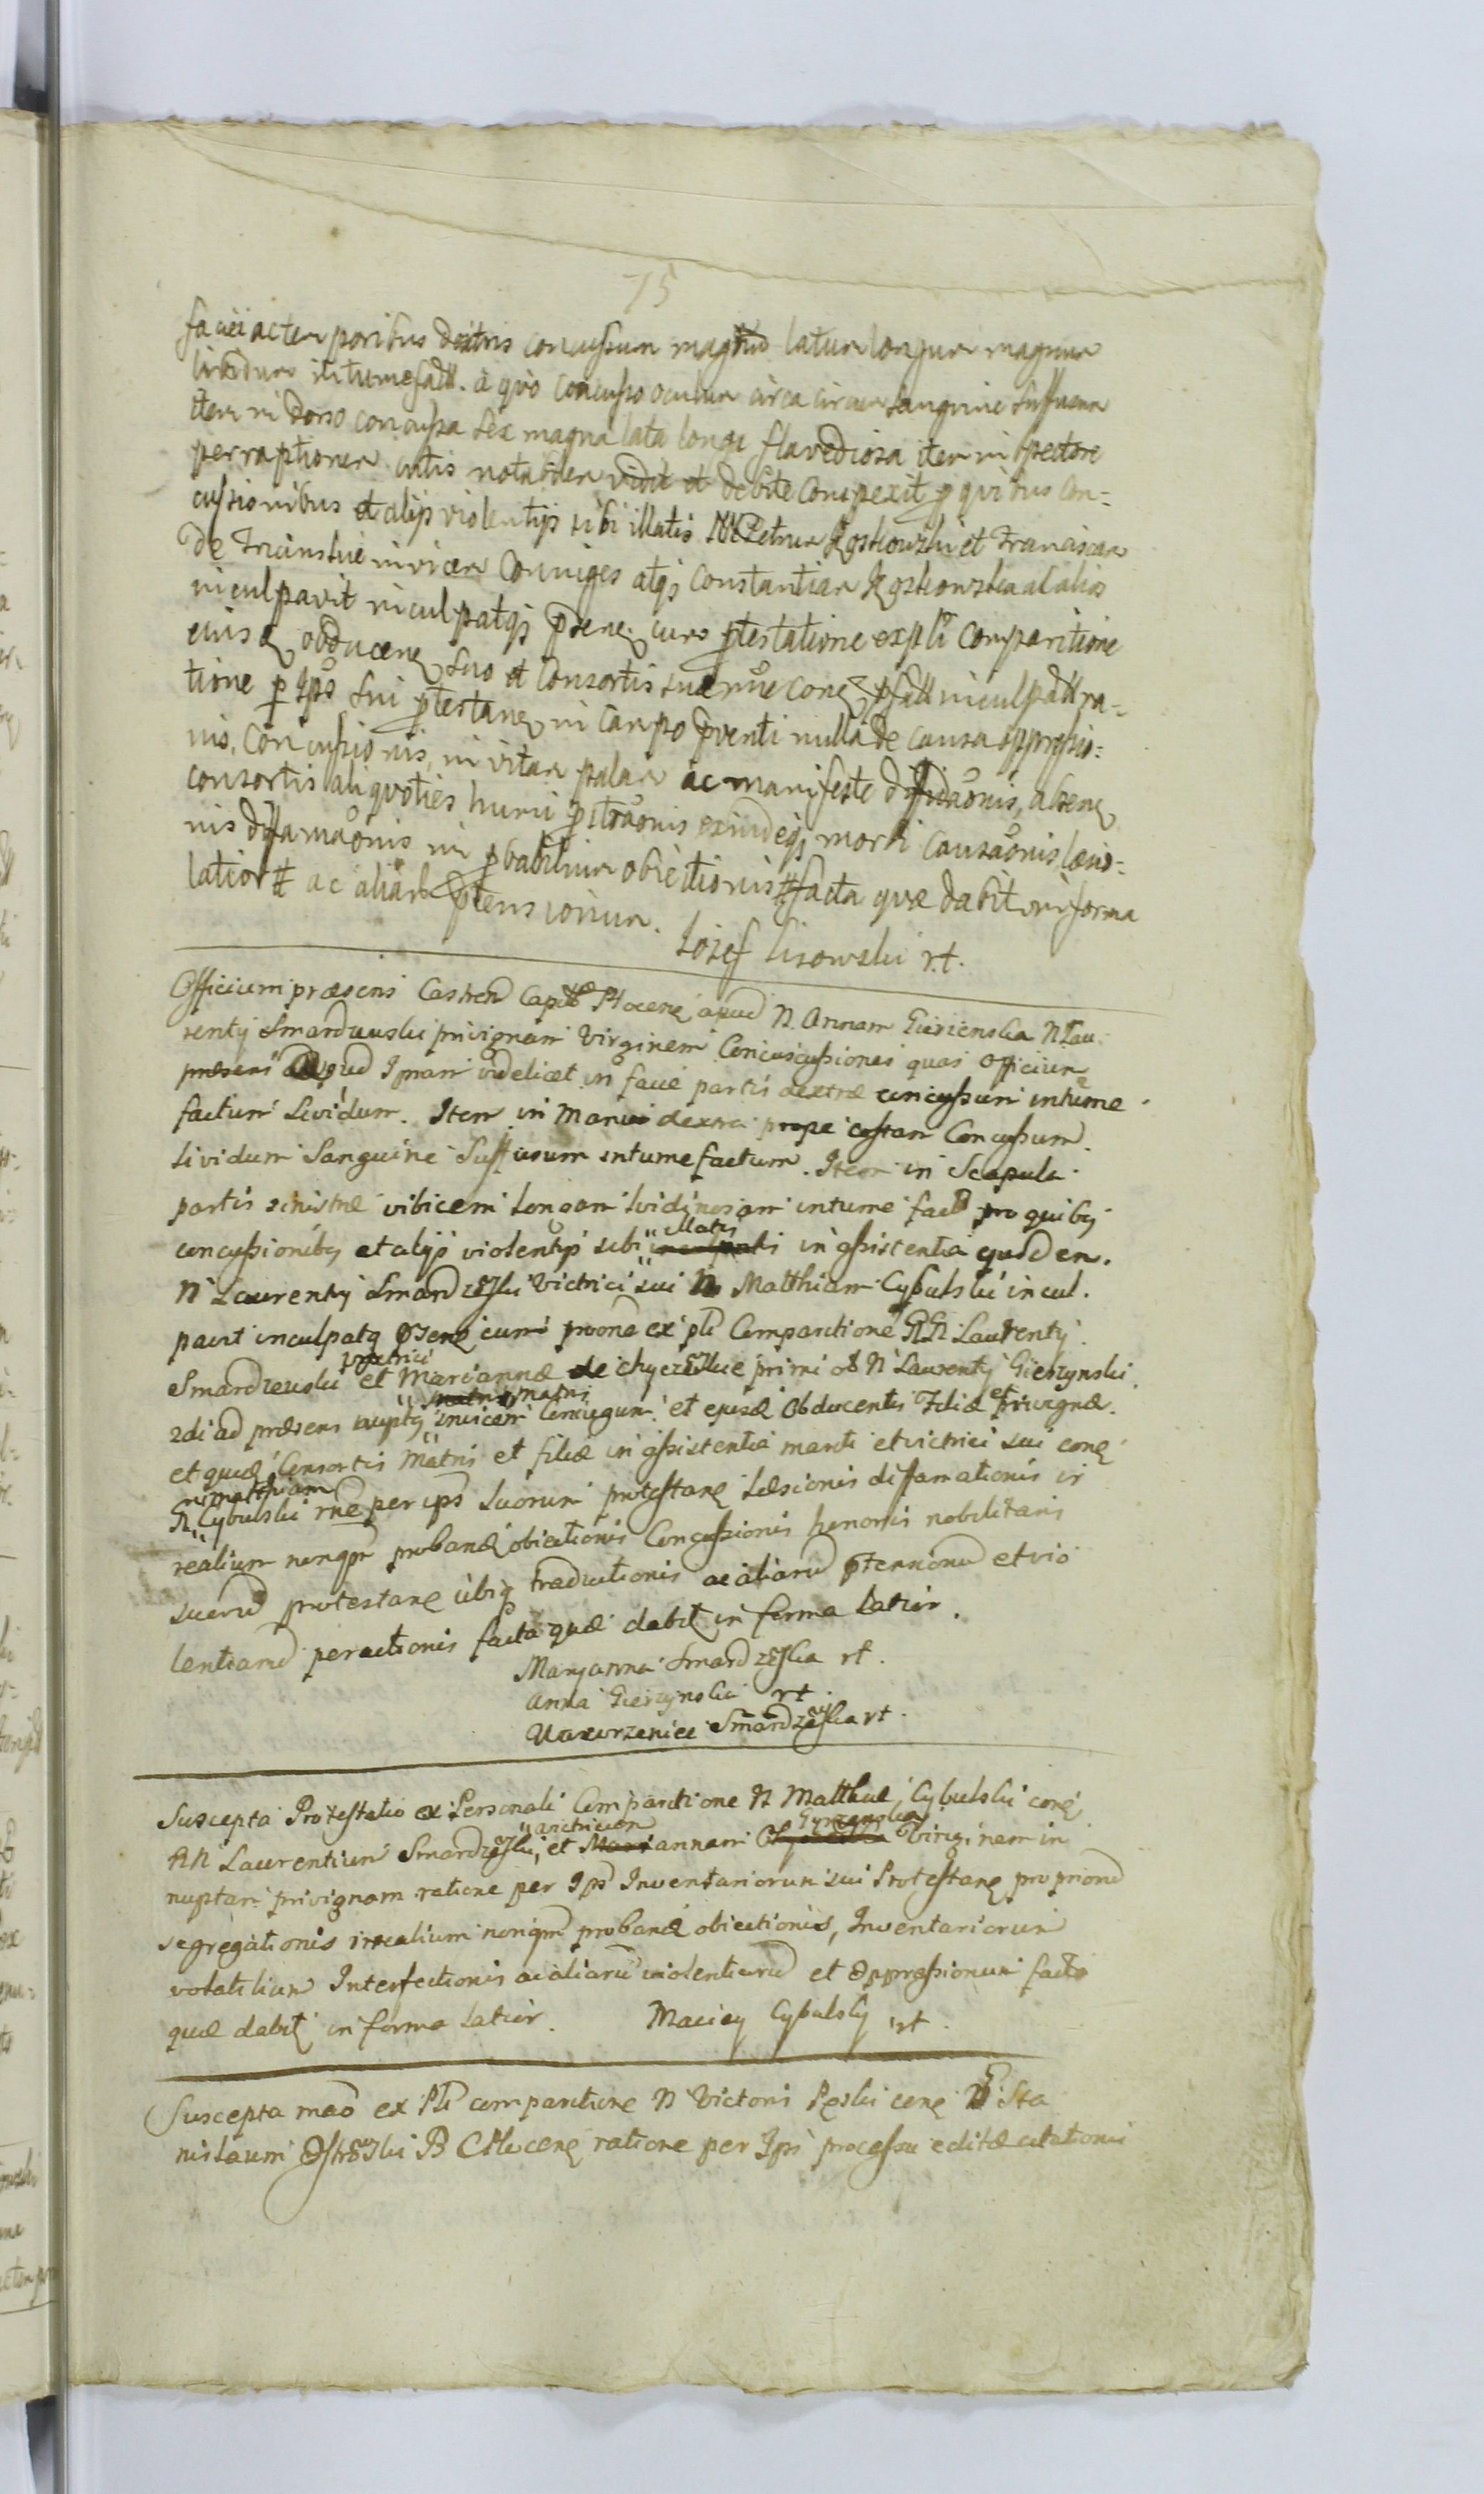 75
faciei acten poribus dextris concussum magnum latum longum magnum
lividum itumefactt. à quo concusso oculum circa circum sanguine suffusum
item in dorso concussa sex magna lata longa flavediosa item in pectore
perraptionem cutis notabilem vidit et debite conspexit p quibus con=
cussionibus et alijs violentijs sibi illatis NN Petrum Kostkowski et Franciscam
de Trcinskie invicem Coniuges atqz Constantiam Kostkowska ac alios
inculpavit inculpatqz pdene cum ptestatione expli comparitione
eius obducen suo et Consortis suae noe con pfatt inculpatt ra=
tione p Ips sui ptestan in campo pventi nulla de causa oppressio=
nis, concussionis, in vitam palam ac manifeste diffidaonis, absen
consortis aliquoties humi pstraonis exindeqz morbi causaonis laesio=
nis diffamaonis in pbabilium obiectionis facta quae dabit in forma
latiori ac aliarum ptensionum.
Iozef Lisowski r.t.
Officium praesens Castren Capitt Plocen apud N. Annam Gierzenska N Lau
renty Smardzewski privignam Virginem Concuscussiones quas officium
praesens apud Ipsam videlicet in facie partis dextrae concussum intume
factum Lividum. Item in Manu dextra prope costam Concussum
Lividum Sanguine Suffusum intumefactum. Item in Scapula
partis sinistrae vibicem Longam lividinosam intume fact pro quibq
concussionibq et alijs violentijs sibi illatis in assistentia ejusdem
N Laurenty Smardzeski Victrici sui N Matthiam Cybulski incul.
pavit inculpatq psens cum proone ex pli Comparitione NN Laurenty
Smardzewski victrici et Mariannae de chyczewskie primi olt N Laurenty Gierzynski
2di ad praesens nuptq matris invicem Coniugum et ejusd Obducentis Filiae et privignae.
et quae Consortis Matris et filiae in assistentia mariti et victrici sui con
N Matthiam Cybulski rne per ips Suorum protestan Laesionis difamationis ir
realium nonqm proband obiectionis Concussionis honoris nobilitaris
suorum protestan ubiq traductionis ac aliarum ptensionum et vio
lentiarum peractionis facta quae dabit in forma Latior.
Maryanna Smardzeska rt.
Anna Gierzynska rt.
Wawrzeniec Smardzeski rt.
Suscepta Protestatio ex Personali Comparitione N Matthae Cybulski con
NN Laurentium Smardzeski victricum et Annam Gyrzynska Virginem in
nuptam privignam ratione per Ips Inventariorum sui Protestan propriorum
segregationis irrealium nonqm proband obiectionis, Inventariorum
volatilium Interfectionis ac aliarum violentiarum et Oppressionum facta
quae dabit in forma Latior. Maciey Cybulsky rt.
Suscepta mao ex Pli comparitione N Victoris Peski con N Sta
nislaum Ostrowski B C Plocen ratione per Ips processu editae citationis